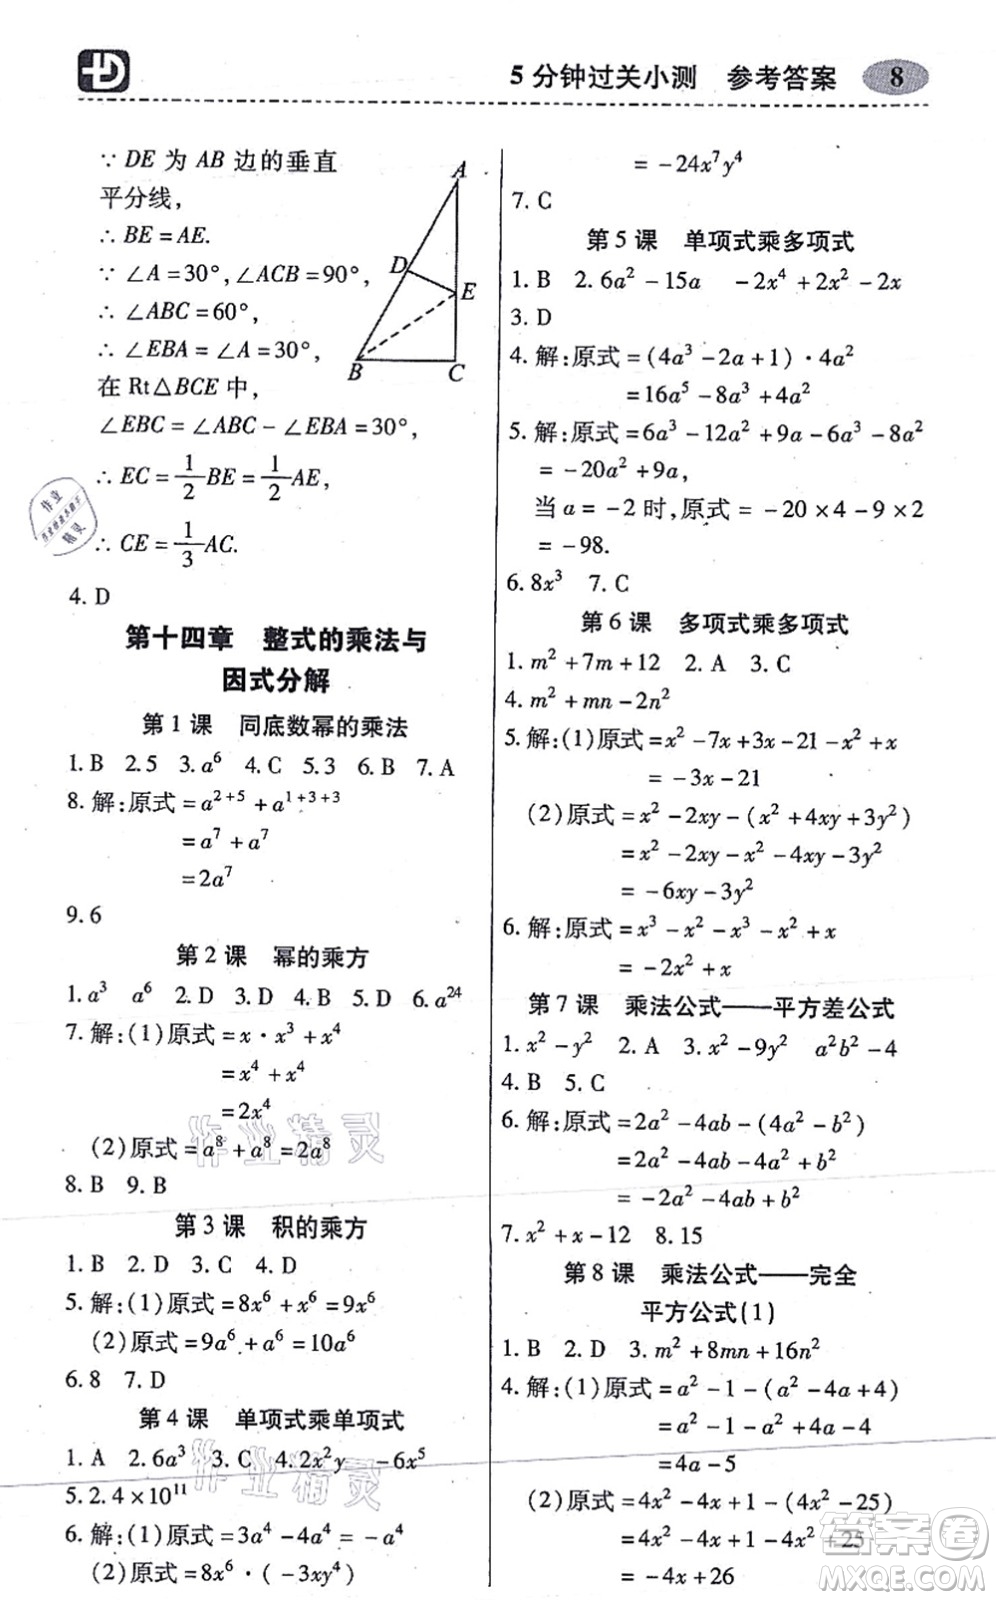 5分钟过关小测 参考答案 8
∵DE为AB边的垂直
平分线，
∴BE=AE.
∵∠A=30°,∠ACB=90°,
∴∠ABC=60°,
∴∠EBA=∠A=30°,
在Rt△BCE中，
∠EBC=∠ABC-∠EBA=30°,
∴EC=1/2BE=1/2AE,
∴CE=1/3AC.
A
D
E
B
C
4.D
第十四章 整式的乘法与
因式分解
第1课 同底数幂的乘法
1.B 2.5 3.a⁶ 4.C 5.3 6.B 7.A
8.解:原式=a²⁺⁵+a¹⁺³⁺³
=a⁷+a⁷
=2a⁷
9.6
第2课 幂的乘方
1.a³ a⁶ 2.D 3.D 4.B 5.D 6.a²⁴
7.解:(1)原式=x·x³+x⁴
=x⁴+x⁴
=2x⁴
(2)原式=a⁸+a⁸=2a⁸
8.B 9.B
第3课 积的乘方
1.B 2.D 3.C 4.D
5.解:(1)原式=8x⁶+x⁶=9x⁶
(2)原式=9a⁶+a⁶=10a⁶
6.8 7.D
第4课 单项式乘单项式
1.A 2.6a³ 3.C 4.2x²y -6x⁵
5.2.4×10¹¹
6.解:(1)原式=3a⁴-4a⁴=-a⁴
(2)原式=8x⁶·(-3xy⁴)
=-24x⁷y⁴
7.C
第5课 单项式乘多项式
1.B 2.6a²-15a -2x⁴+2x²-2x
3.D
4.解:原式=(4a³-2a+1)·4a²
=16a⁵-8a³+4a²
5.解:原式=6a³-12a²+9a-6a³-8a²
=-20a²+9a,
当a=-2时,原式=-20×4-9×2
=-98.
6.8x³ 7.C
第6课 多项式乘多项式
1.m²+7m+12 2.A 3.C
4.m²+mn-2n²
5.解:(1)原式=x²-7x+3x-21-x²+x
=-3x-21
(2)原式=x²-2xy-(x²+4xy+3y²)
=x²-2xy-x²-4xy-3y²
=-6xy-3y²
6.解:原式=x³-x²-x³-x²+x
=-2x²+x
第7课 乘法公式——平方差公式
1.x²-y² 2.A 3.x²-9y² a²b²-4
4.B 5.C
6.解:原式=2a²-4ab-(4a²-b²)
=2a²-4ab-4a²+b²
=-2a²-4ab+b²
7.x²+x-12 8.15
第8课 乘法公式——完全
平方公式(1)
1.B 2.D 3.m²+8mn+16n²
4.解:(1)原式=a²-1-(a²-4a+4)
=a²-1-a²+4a-4
=4a-5
(2)原式=4x²-4x+1-(4x²-25)
=4x²-4x+1-4x²+25
=-4x+26
作业精灵
作业精灵
作业
精灵
答案圈
MXQE.COM